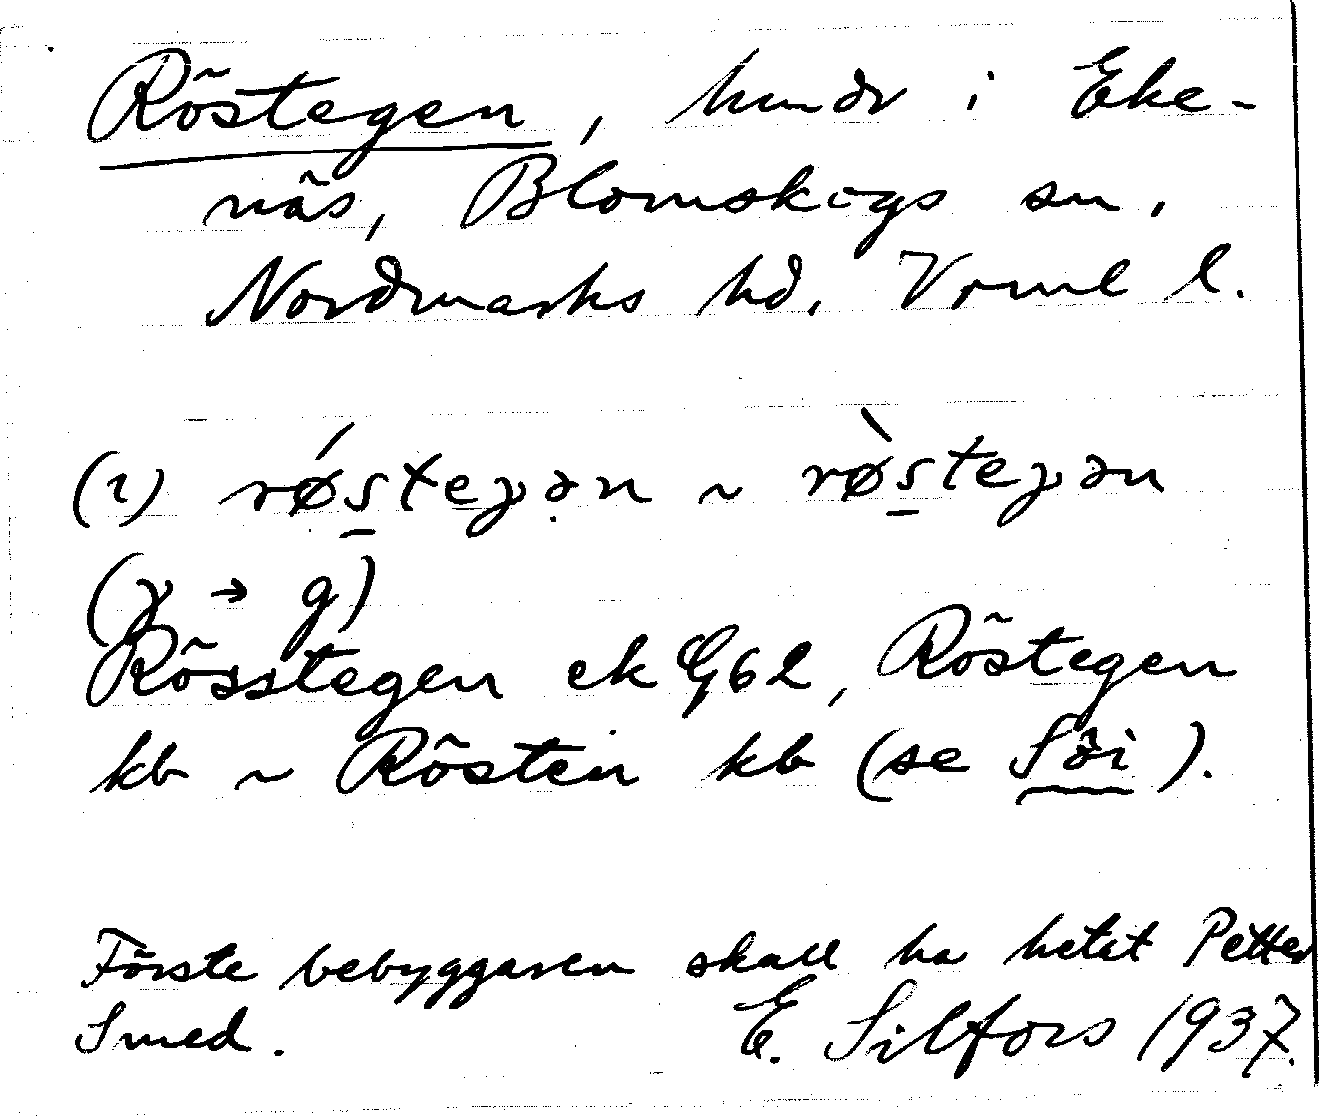 Röstegen, hmdr i Eke-
näs, Blomskogs sn,
Nordmarks hd, Vrml l.
(i) røsteγən ~ røsteγən
(γ → g)
Rösstegen ek G62, Röstegen
kb ~ Rösten kb (se Söi).
Förste bebyggaren skall ha hetat Petter
Smed. E. Silfors 1937.